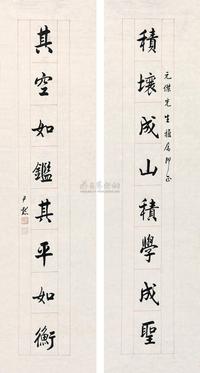 積壤成山積學成聖
元傑先生雅屬即正
其空如鑑其平如衡
尹默